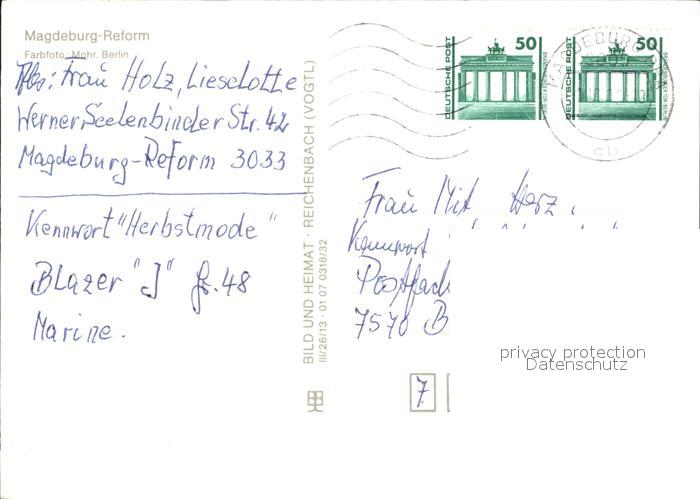 Magdeburg-Reform
Farbfoto: Mohr, Berlin
Abs.: Frau Holz, Lieselotte
Werner, Seelenbinder Str. 42
Magdeburg-Reform 3033
Kennwort "Herbstmode"
Blazer "J" Gr. 48
Marine.
BILD UND HEIMAT · REICHENBACH (VOGTL)
III/26/13 · 01 07 0318/32
DEUTSCHE POST 50
DEUTSCHE POST 50
MAGDEBURG
ab
Frau Mit Herz,
Kennwort
Postfach
7570 B
7
privacy protection
Datenschutz